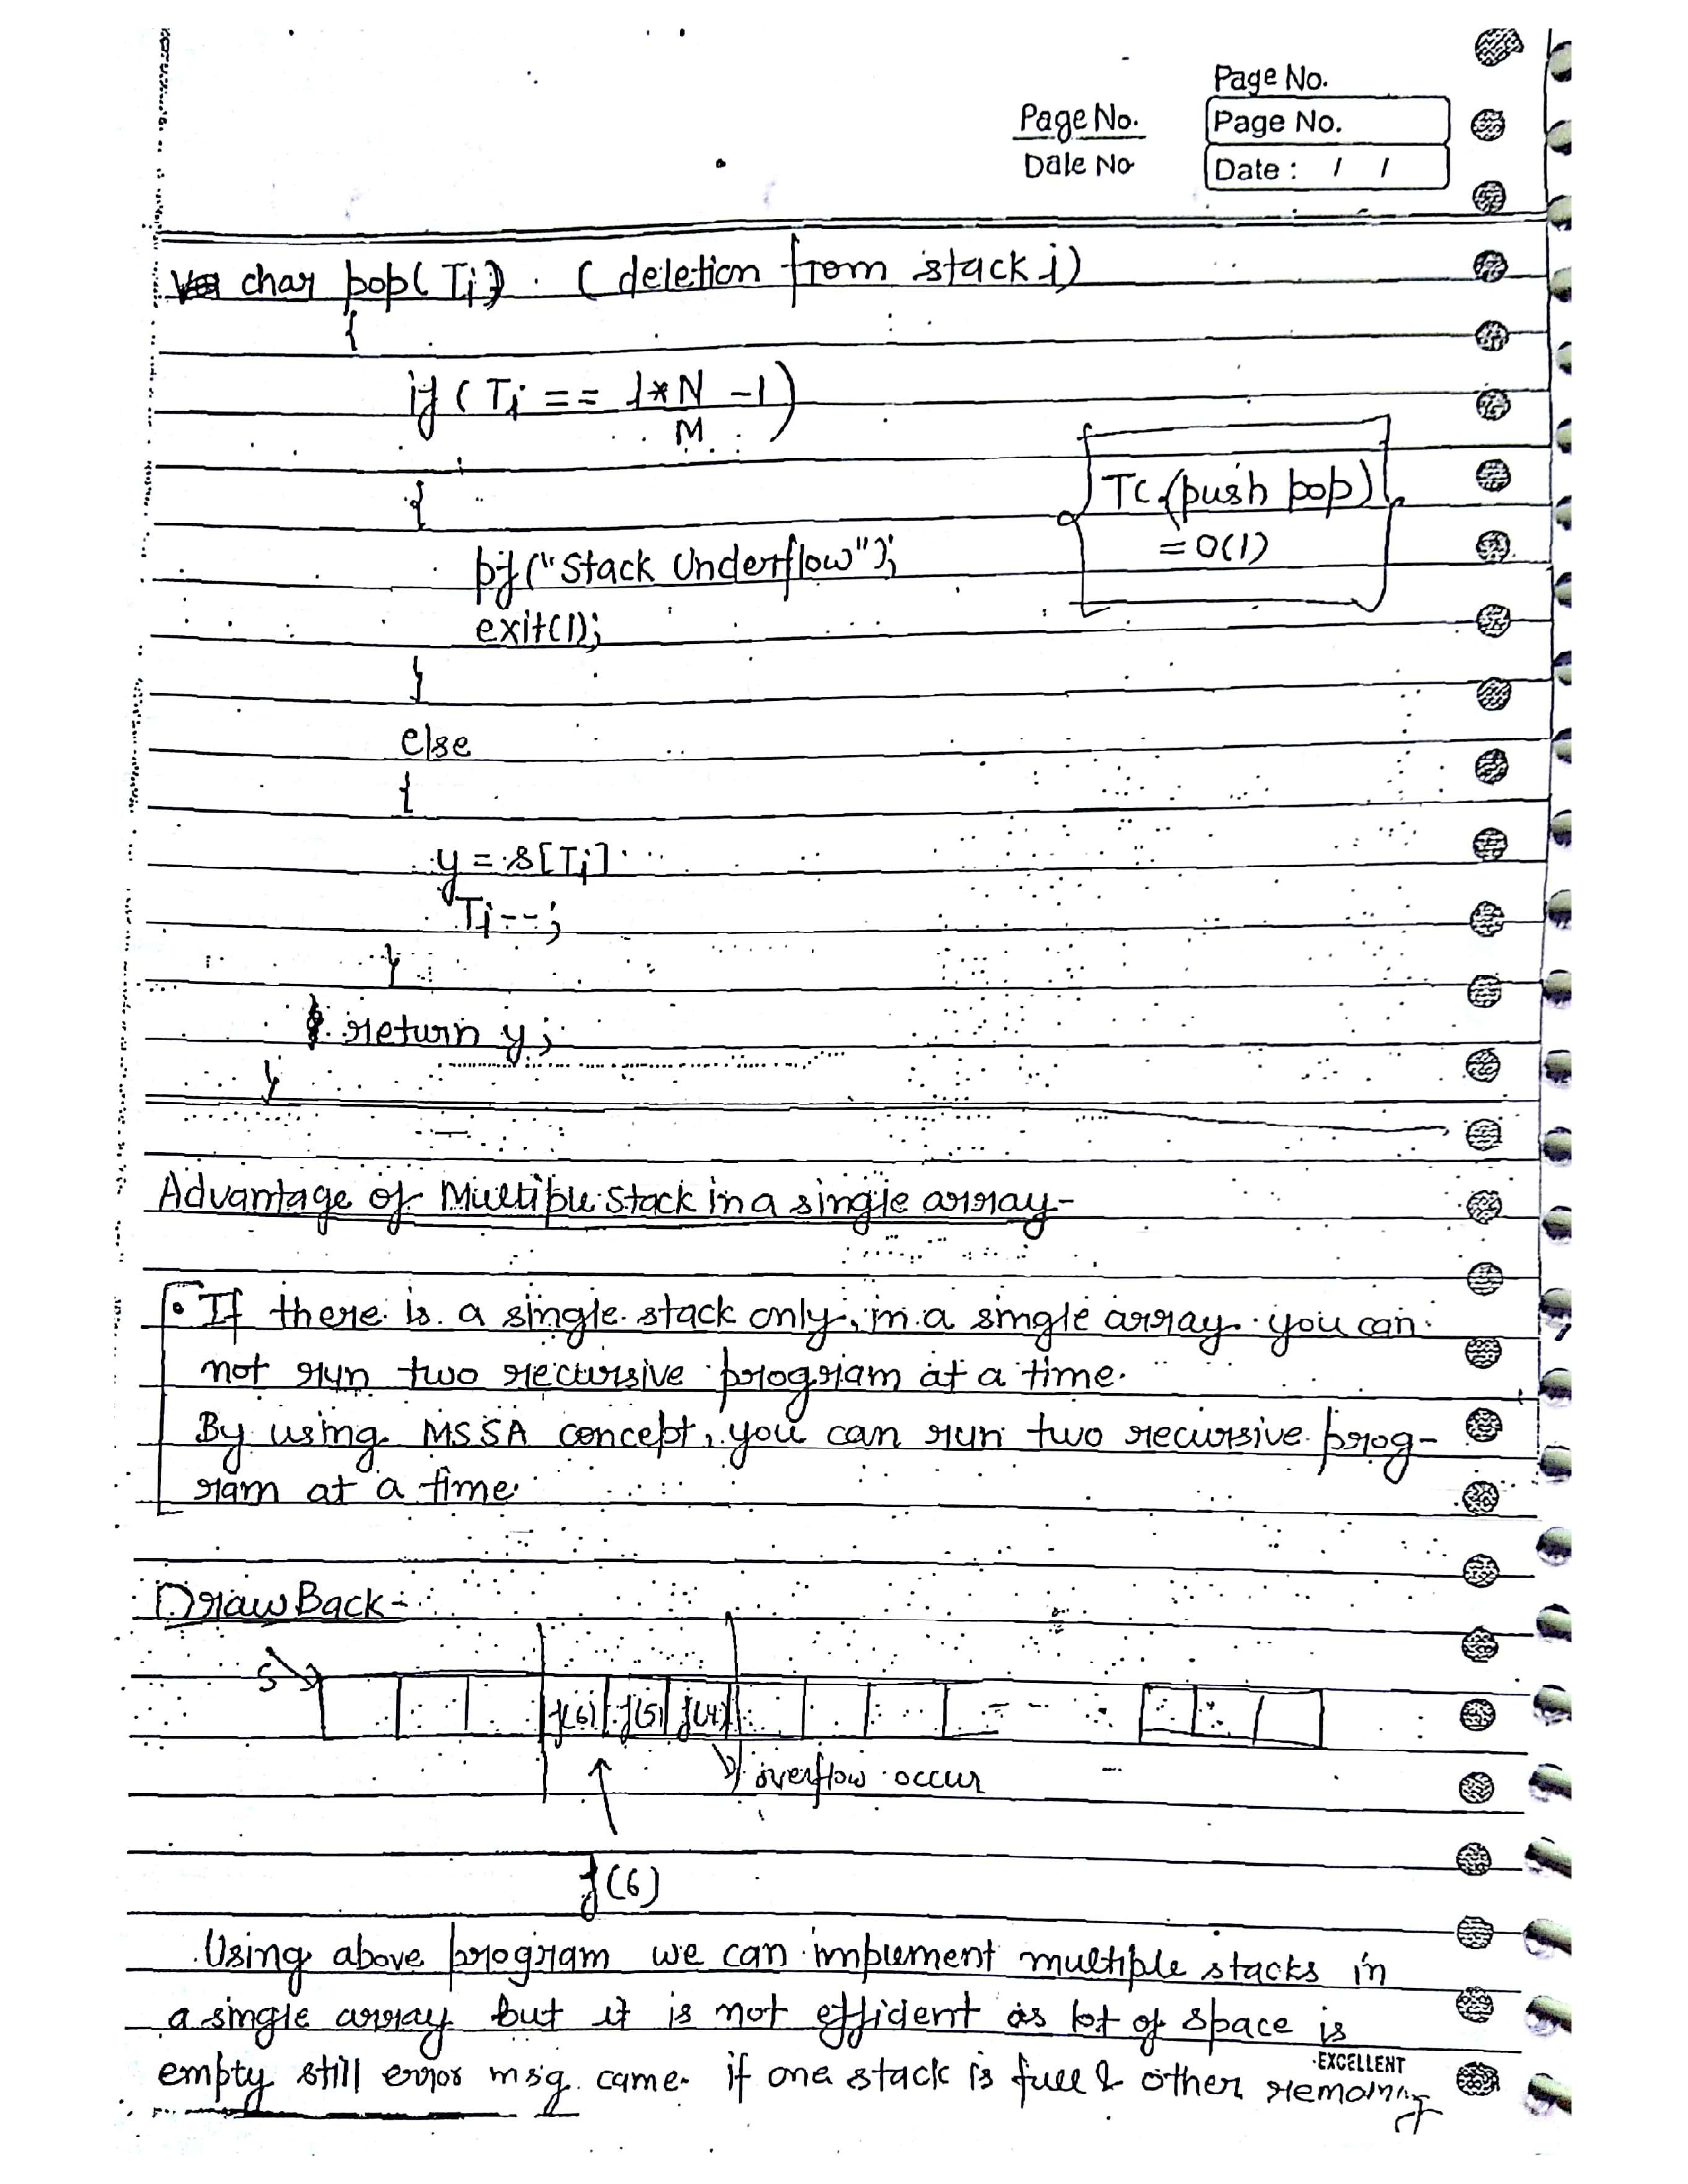 Page No.
Page No.
Page No.
Dale No
Date : / /
char pop( Ti) . ( deletion from stack i)
{
if ( Ti == i*N - 1)
M
{
pf ("Stack Underflow");
exit(1);
}
TC (push pop)
= O(1)
else
{
y = s[Ti]
Ti--;
}
return y;
}
Advantage of Multiple Stack in a single array-
• If there is a single stack only, in a single array you can
not run two recursive program at a time.
By using MSSA concept, you can run two recursive prog-
ram at a time
Draw Back-
S
f(6) f(5) f(4) - - -
overflow occur
f(6)
Using above program we can implement multiple stacks in
a single array but it is not efficient as lot of space is
empty still error msg. came. if one stack is full & other remaining
EXCELLENT